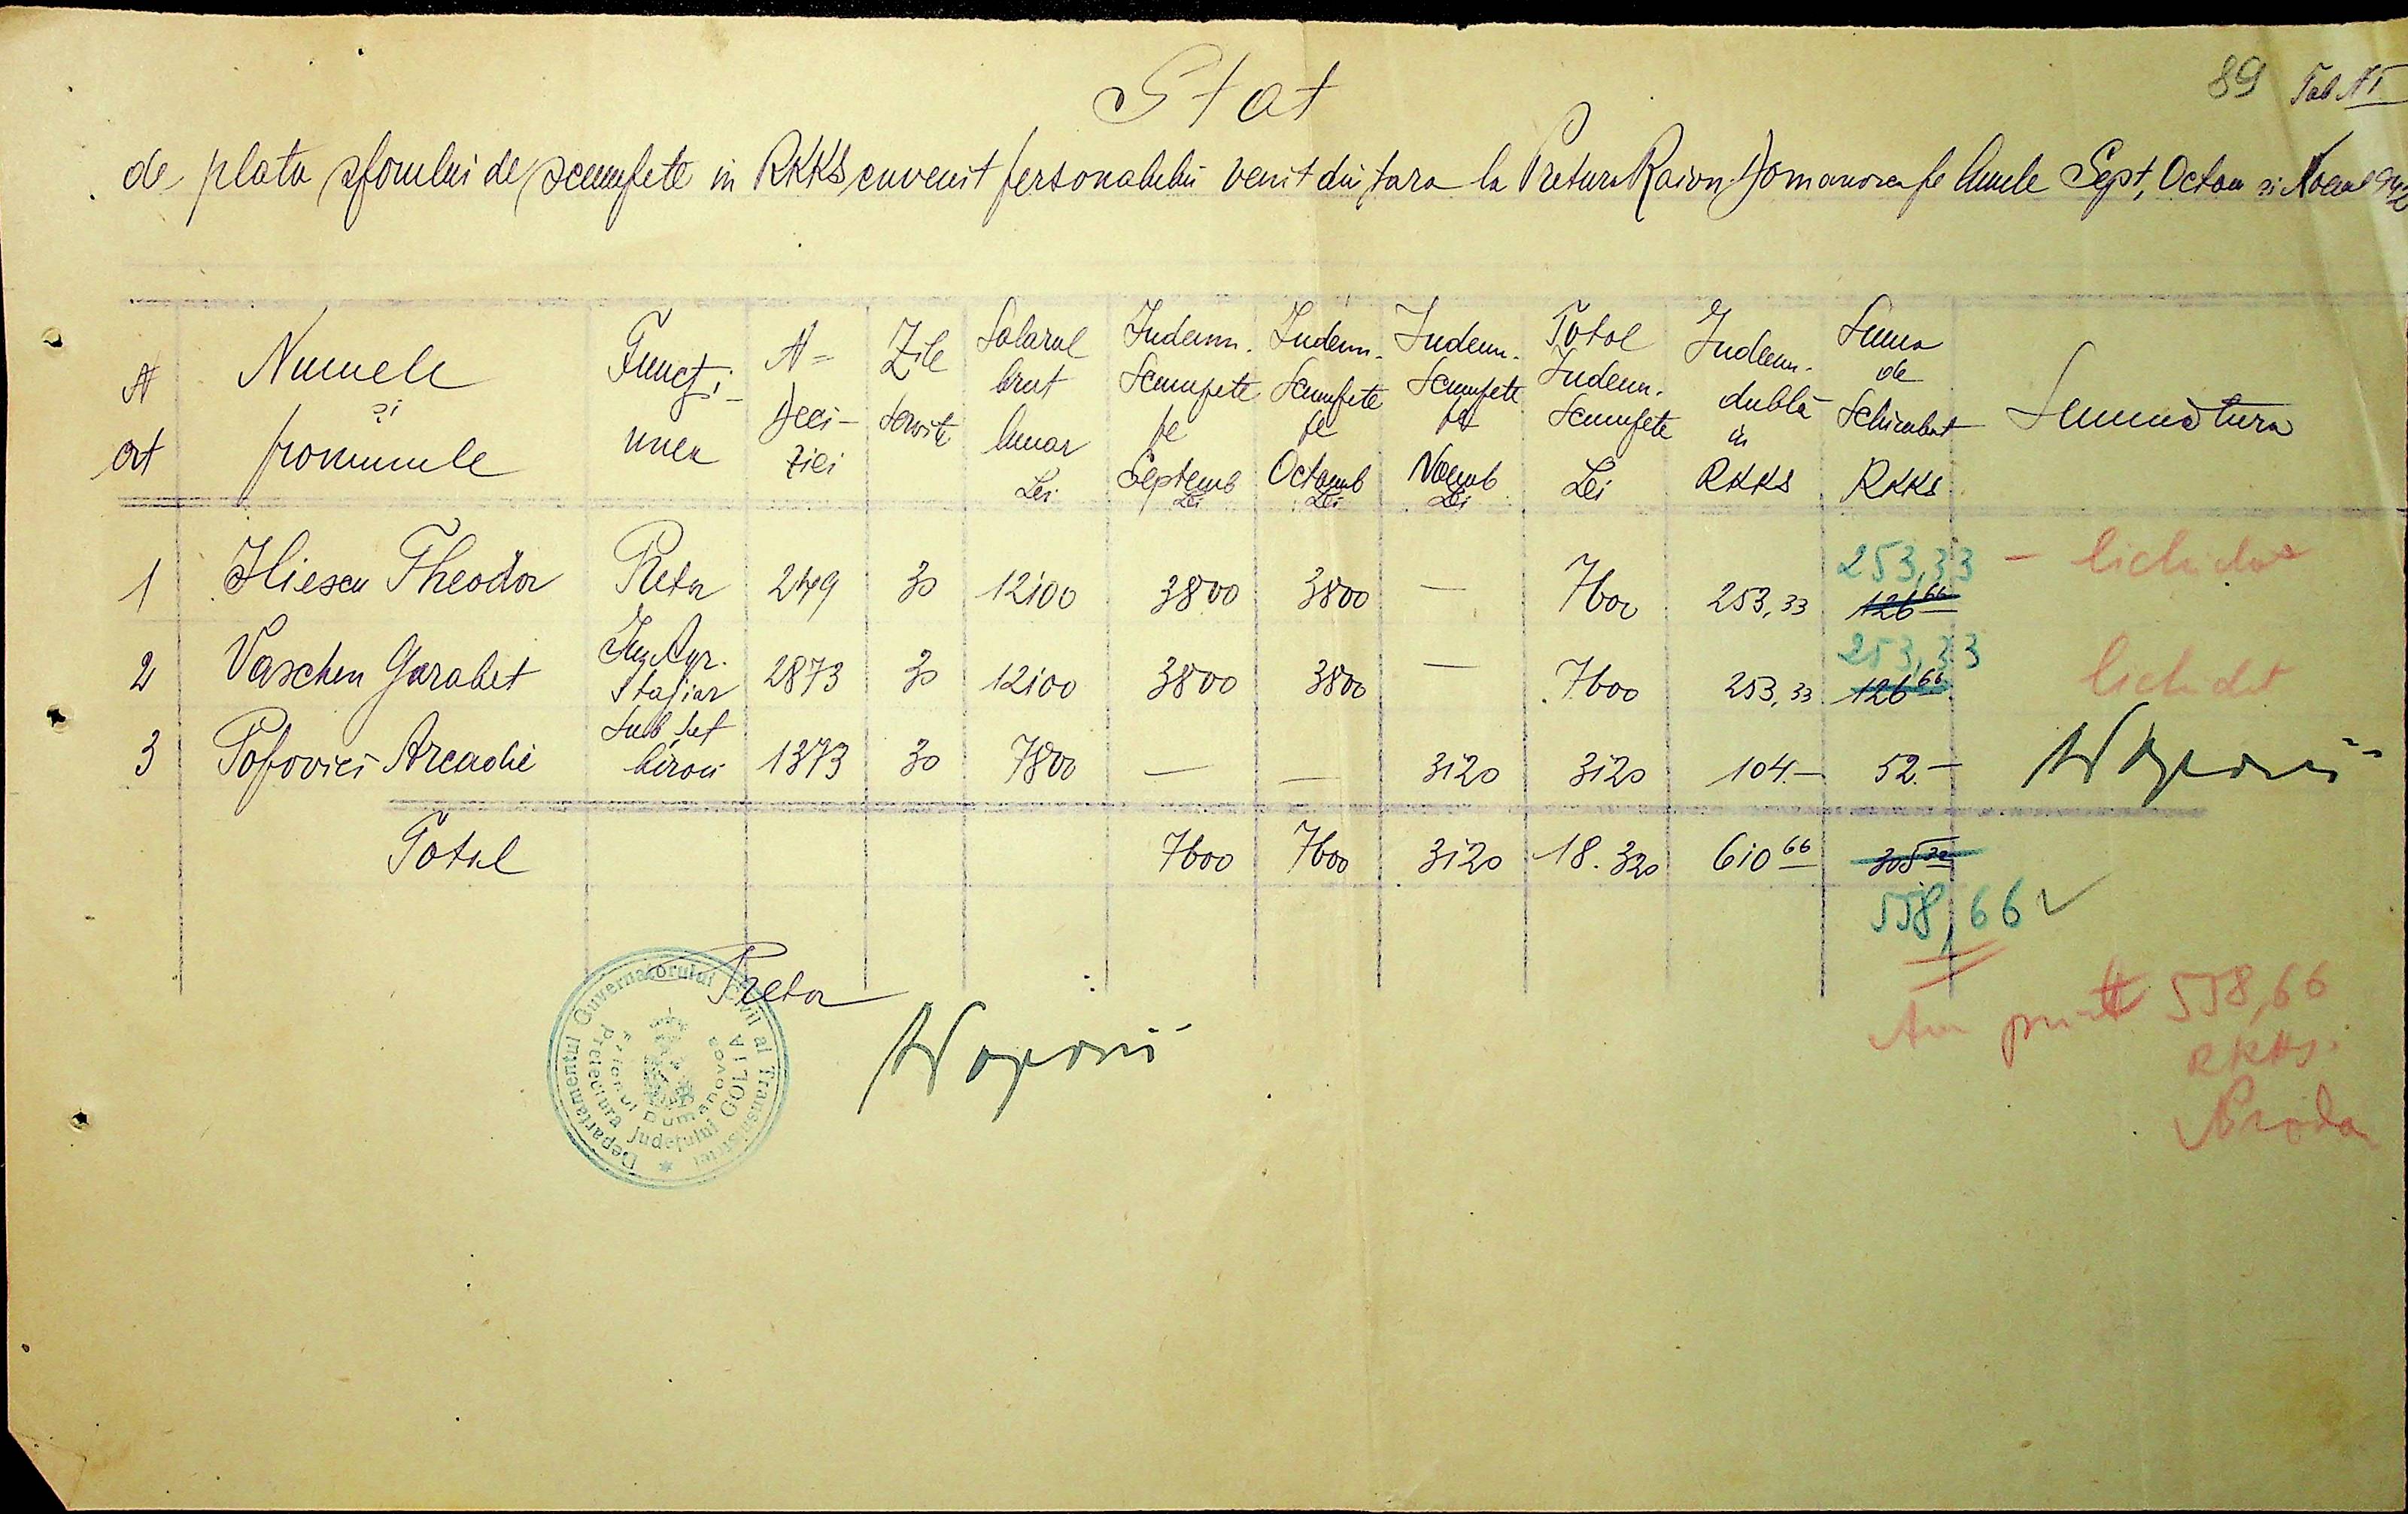 89 Tab N 1
Stat
de plata sporului de scumpete in RKKS cuvenit personalului venit din tara la Pretura Raion Domanovca pe lunele Sept, Octom si Noem 942
N ort | Numele si pronumele | Funcți- unea | N= Deci- ziei | Zile servite | Salarul brut lunar Lei | Indemn. Scumpete pe Septemb Lei | Indemn. Scumpete pe Octomb Lei | Indemn. Scumpete pe Noemb Lei | Total Indemn. Scumpete Lei | Indemn. dublă in RKKS | Suma de Schimbat RKKS | Semnătura
1 Iliescu Theodor Pretor 2479 30 12100 3800 3800 — 7600 253,33 126 66 253,33 — lichidat
2 Vaschen Garabet Ing Agr. Stagiar 2873 30 12100 3800 3800 — 7600 253,33 126 66 253,33 lichidat
3 Popovici Arcadie Sub șef birou 1373 30 7800 — — 3120 3120 104.— 52.—
Total 7600 7600 3120 18.320 610 66 305 32
558,66
Pretor
Am primit 558,66
RKKS.
Departamentul Guvernatorului Civil al Transnistriei
Prefectura Județului GOLTA
Dumanovca